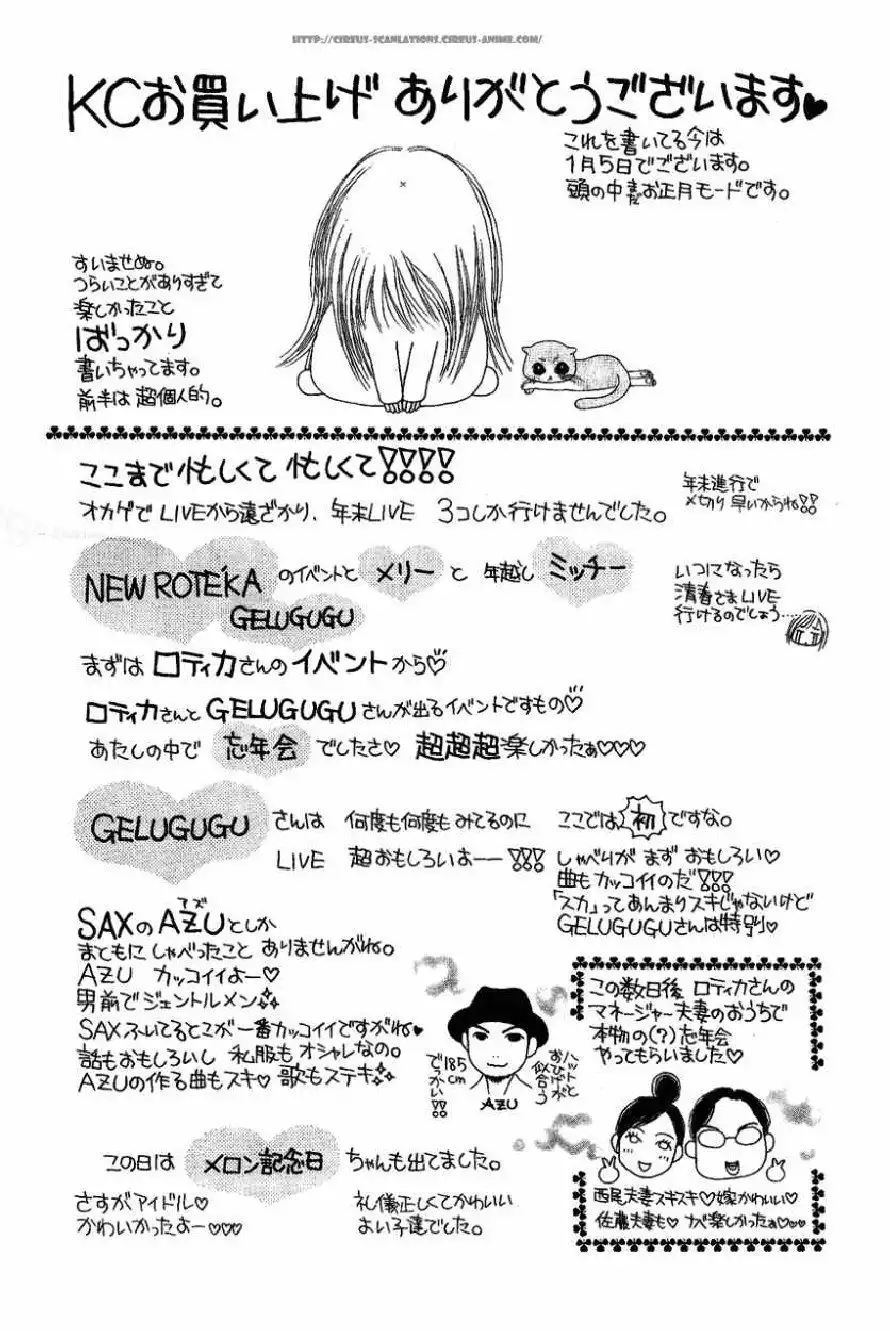 HTTP://CIREUS-SCANLATIONS.CIREUS-ANIME.COM/
KCお買い上げ ありがとうございます♥
これを書いてる今は
1月5日でございます。
頭の中まだお正月モードです。
すいませぬ。
つらいことがありすぎて
楽しかったこと
ばっかり
書いちゃってます。
前半は 超個人的。
ここまで忙しくて 忙しくて!!!!
オカゲで LIVEから遠ざかり、年末LIVE 3コしか行けませんでした。
年末進行で
〆切り 早いからね!!
NEW ROTE'KA のイベントと メリー と 年越し ミッチー
GELUGUGU
いつになったら
清春さまLIVE
行けるのでしょう……
まずは ロティカさんのイベントから♡
ロティカさんと GELUGUGUさんが出るイベントですもの♡
あたしの中で 忘年会 でしたさ♡ 超超超楽しかったぁ♡♡♡
GELUGUGU さんは 何度も何度もみてるのに ここでは 初 ですな。
LIVE 超おもしろいよーー!!!
しゃべりが まず おもしろい♡
曲もカッコイイのだ!!!
「スカ」ってあんまりスキじゃないけど
GELUGUGUさんは特別♡
アズ
SAXのAZUとしか
まともに しゃべったこと ありませんがね。
AZU カッコイイよー♡
男前でジェントルメン
SAXふいてるとこが一番カッコイイですがね♥
話もおもしろいし 私服も オシャレなの。
AZUの作る曲もスキ♡ 歌もステキ
ハットと
おひげが
似合う
185cm
でっかい!!
AZU
この数日後 ロティカさんの
マネージャー夫妻のおうちで
本物の(?)忘年会
やってもらいました♡
西尾夫妻スキスキ♡嫁かわいい♡
佐藤夫妻も♡ ナベ楽しかったぁ♡♡♡
この日は メロン記念日 ちゃんも出てました。
さすがアイドル♡
かわいかったよー♡♡♡
礼儀正しくてかわいい
よい子達でした。